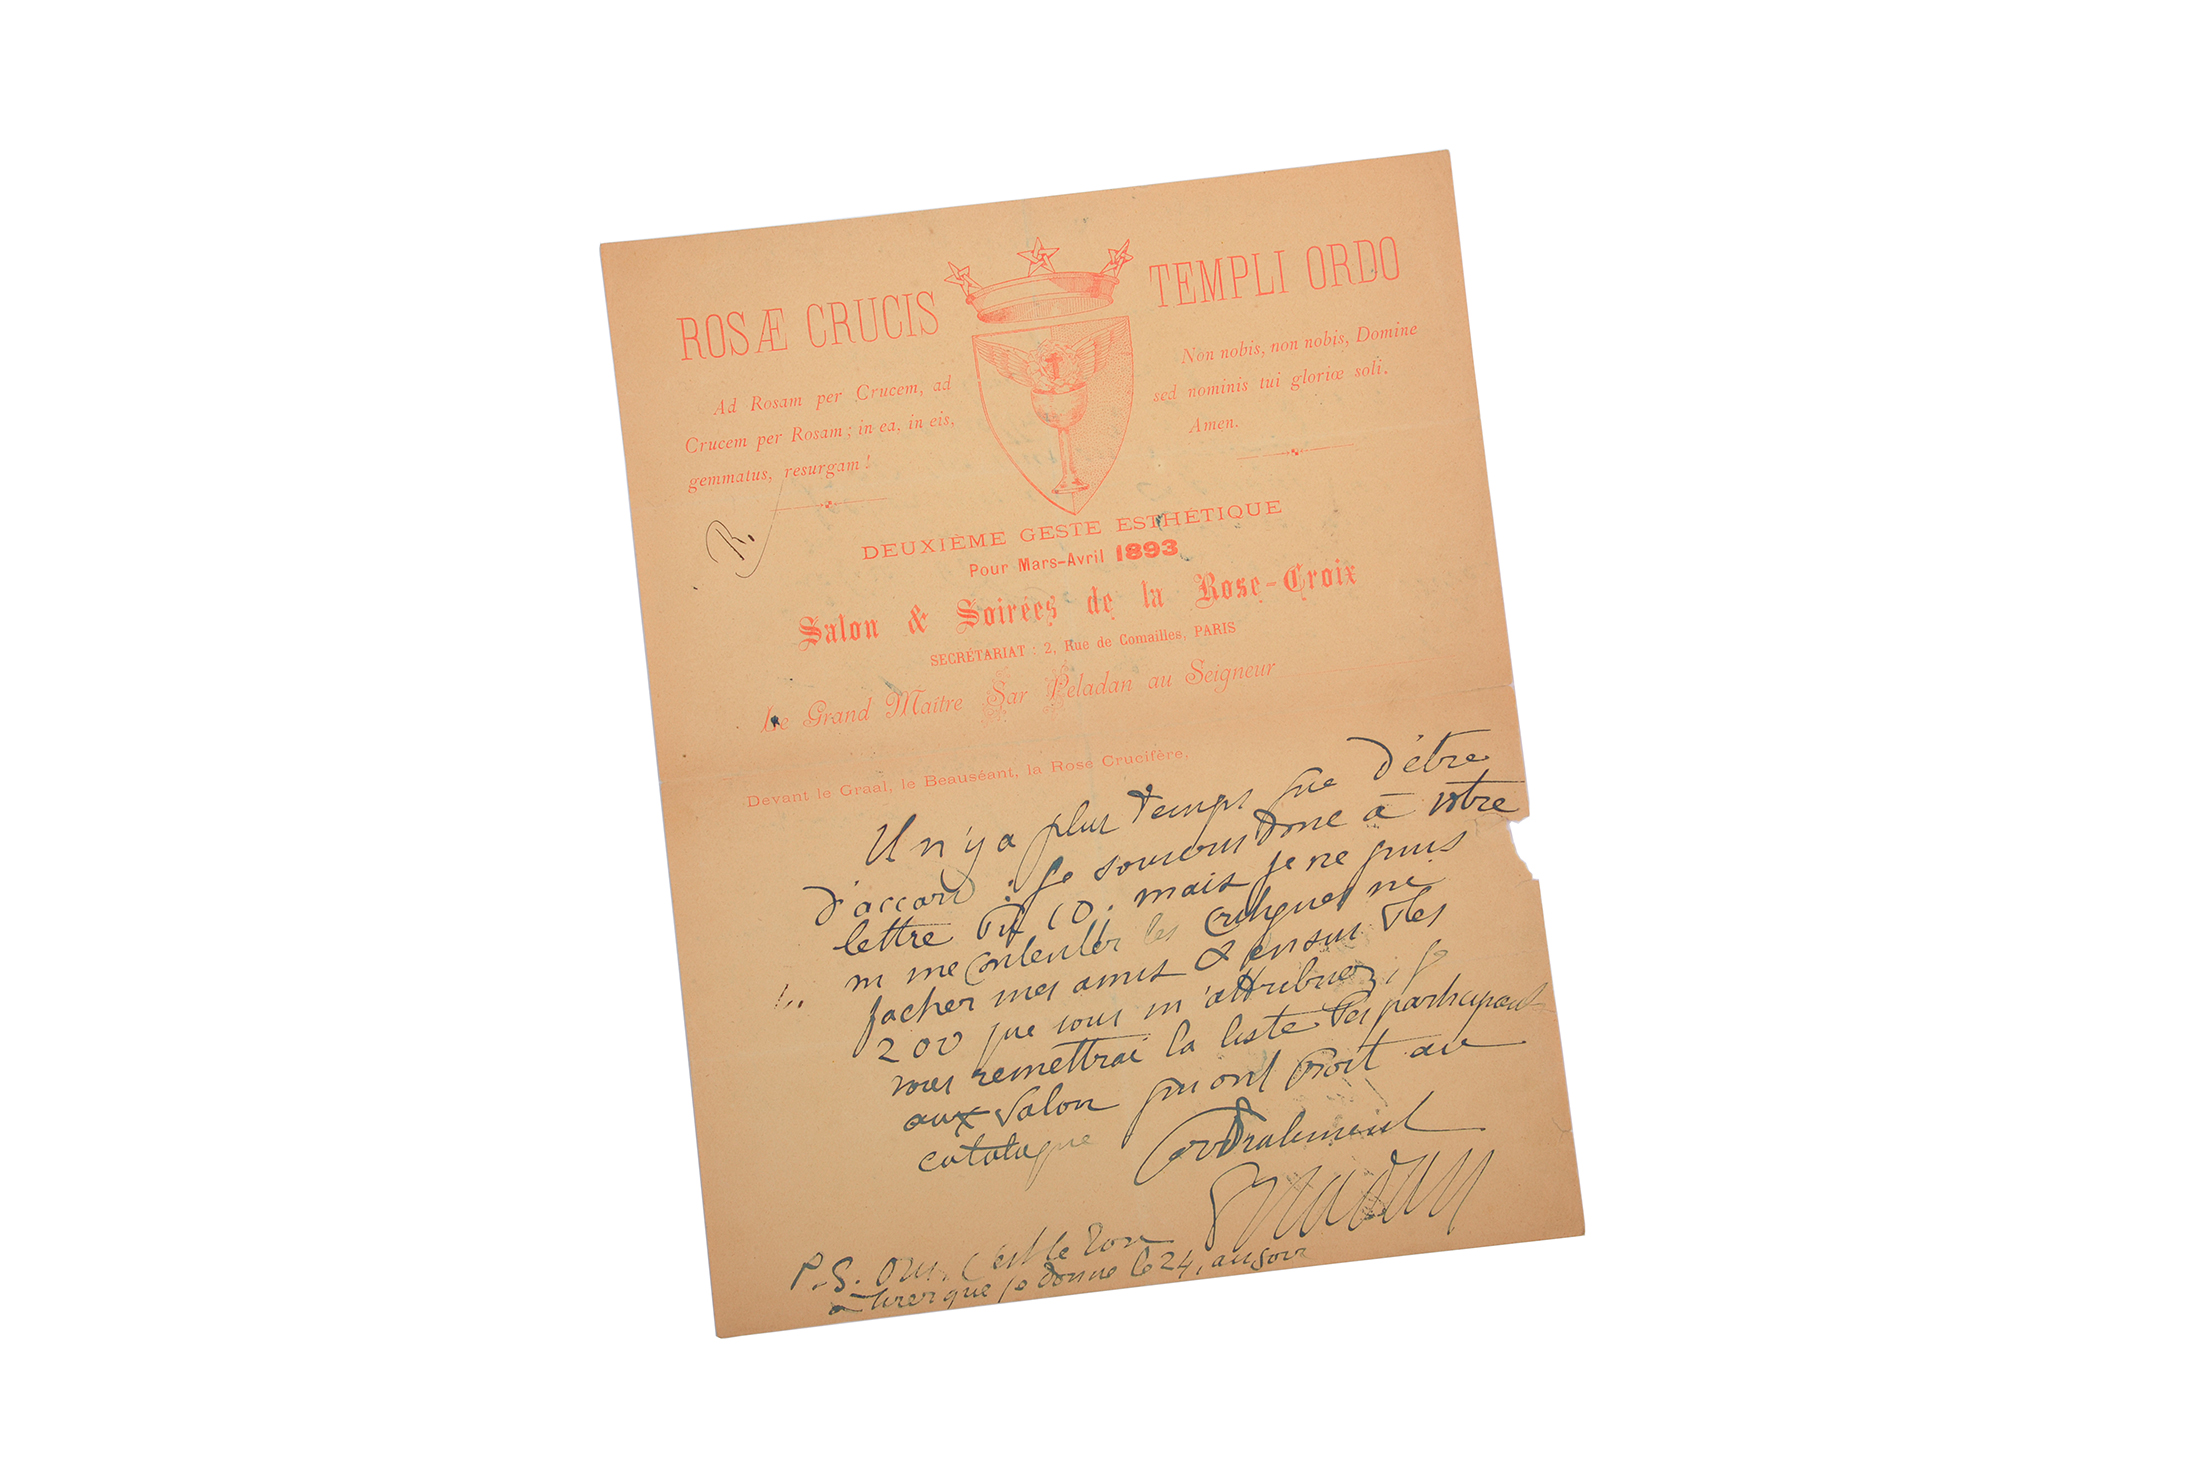 ROSÆ CRUCIS
TEMPLI ORDO
Ad Rosam per Crucem, ad
Crucem per Rosam ; in ea, in eis,
gemmatus, resurgam !
Non nobis, non nobis, Domine
sed nominis tui gloriœ soli.
Amen.
R.
DEUXIÈME GESTE ESTHÉTIQUE
Pour Mars-Avril 1893
Salon & Soirées de la Rose-Croix
SECRÉTARIAT : 2, Rue de Comailles, PARIS
Le Grand Maître Sar Peladan au Seigneur
Devant le Graal, le Beauséant, la Rose Crucifère,
Il n'y a plus temps que d'être
d'accord : je souscris donc à votre
lettre du 10. mais je ne puis
ni mécontenter les critiques ni
facher mes amis & en sus des
200 que vous m'attribuez, je
vous remettrai la liste des participants
aux Salon qui ont droit au
catalogue
Cordialement
Peladan
P.S. Oui, c'est le bon
à tirer que je donne le 24, au soir